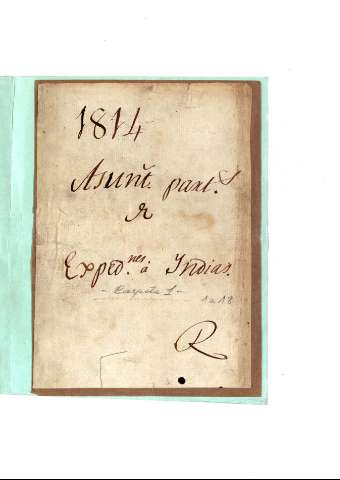 1814
Asunt. part.s
de
Exped.nes a Indias.
- Carpeta 1 -
1 a 18
R